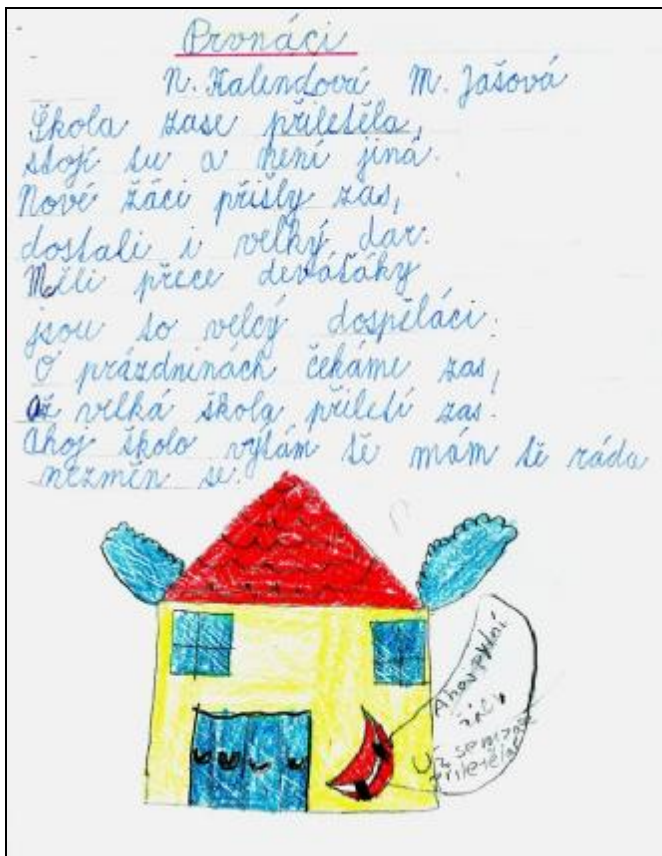 Prvnáci
N. Kalendová M. Jašová
Škola zase přiletěla,
stojí tu a není jiná.
Nové žáci přišly zas,
dostali i velký dar.
Měli přece deváťáky
jsou to velcý dospěláci.
O prázdninách čekáme zas,
až velká škola přiletí zas.
Ahoj školo výtám tě mám tě ráda
nezměn se!
Ahoj
žáci
Už sem zase
přiletěla